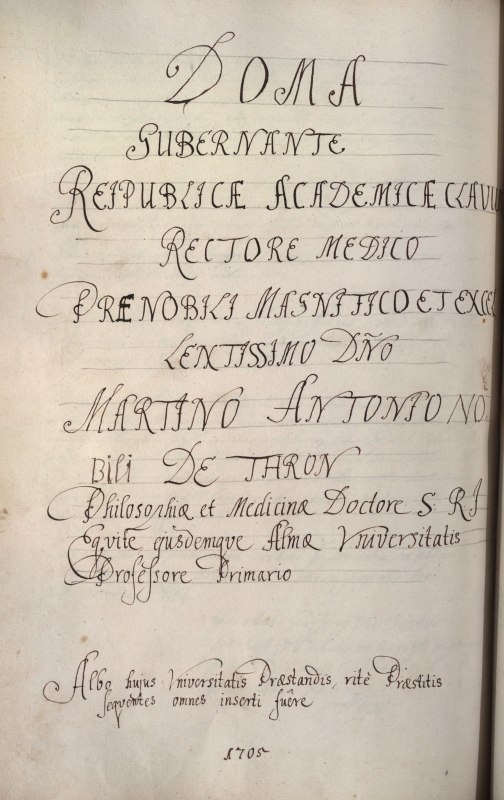 DOMA
GUBERNANTE
REIPUBLICÆ ACADEMICÆ CLAVU
RECTORE MEDICO
PRÆNOBILI MAGNIFICO ET EXCEL
LENTISSIMO DÑO
MARTINO ANTONIO NO
Bili DE THRON
Philosophiæ et Medicinæ Doctore S: R: I
Equite ejusdemque Almæ Universitatis
Professore Primario
Albo hujus Universitatis Præstandis, ritè Præstitis
sequentes omnes inserti fuêre
1705